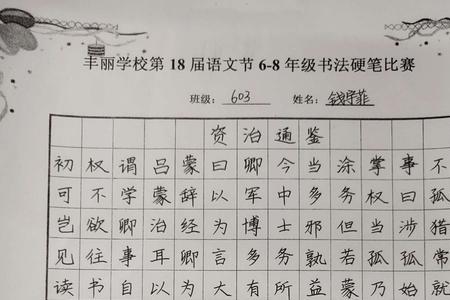 丰丽学校第 18 届语文节 6-8 年级书法硬笔比赛
班级： 603 姓名： 钱学菲
资治通鉴
初权谓吕蒙曰卿今当涂掌事不
可不学蒙辞以军中多务权曰孤
岂欲卿治经为博士邪但当涉猎
见往事耳卿言多务孰若孤孤常
读书自以为大有所益蒙乃始就